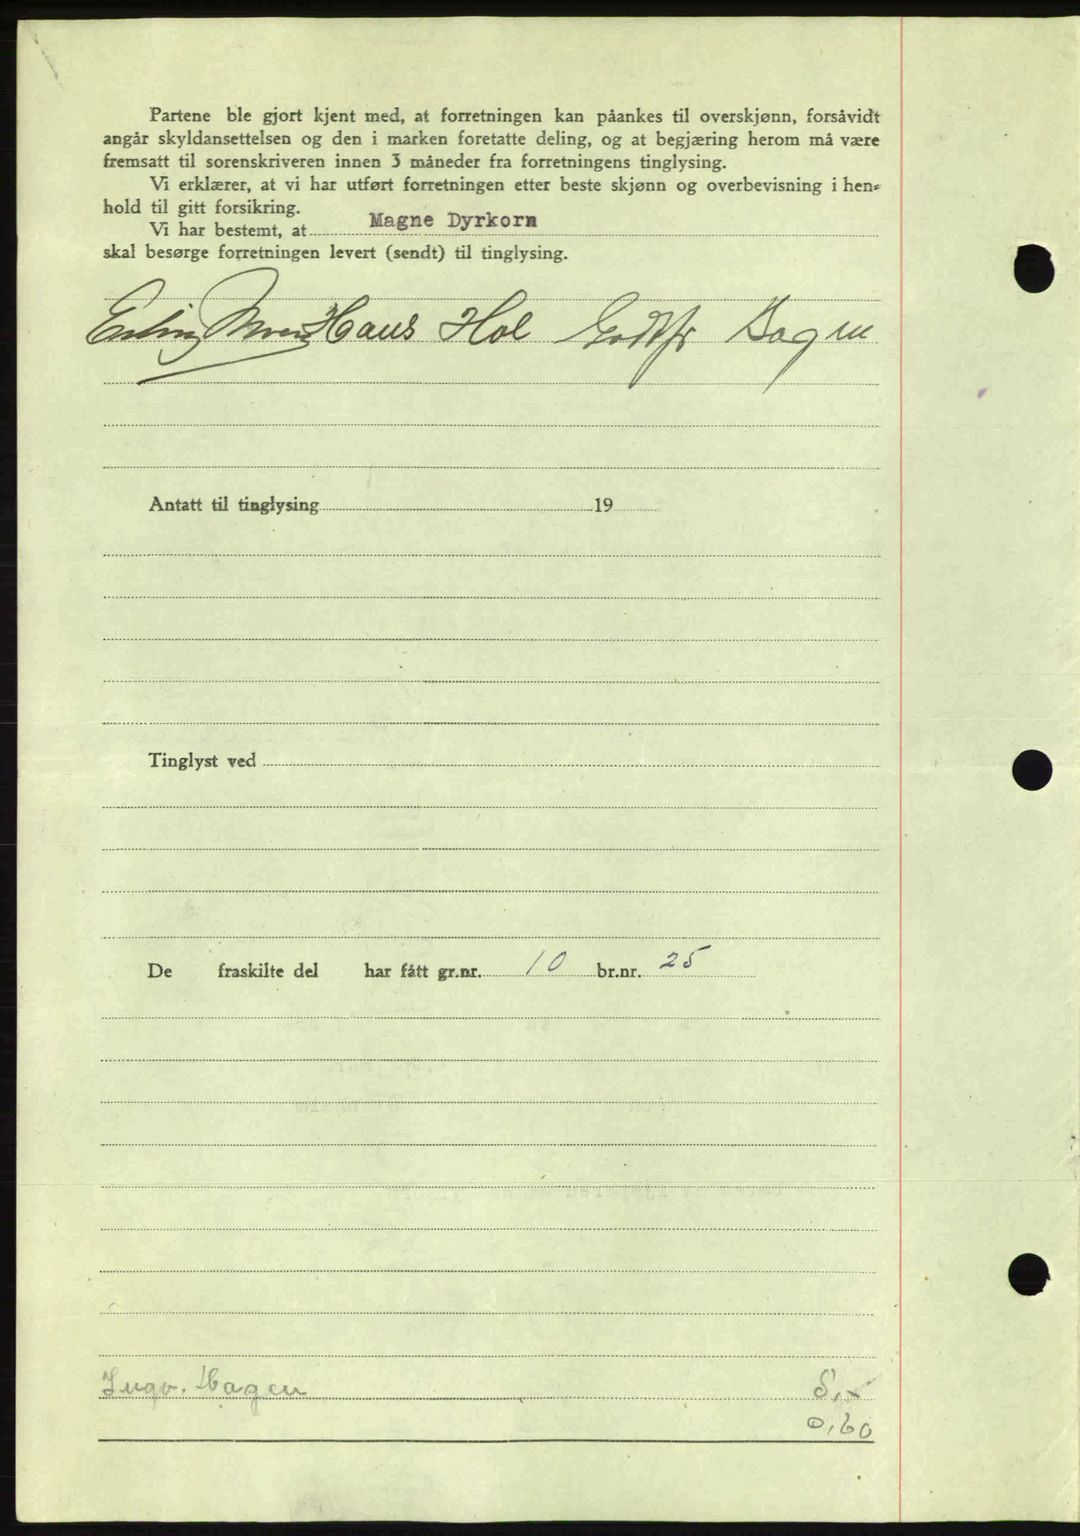 Partene ble gjort kjent med, at forretningen kan påankes til overskjønn, forsåvidt
angår skyldansettelsen og den i marken foretatte deling, og at begjæring herom må være
fremsatt til sorenskriveren innen 3 måneder fra forretningens tinglysing.
Vi erklærer, at vi har utført forretningen etter beste skjønn og overbevisning i hen-
hold til gitt forsikring.
Vi har bestemt, at Magne Dyrkorn
skal besørge forretningen levert (sendt) til tinglysing.
Erling Hans Hol Godtfr Hagen
Antatt til tinglysing 19
Tinglyst ved
De fraskilte del har fått gr.nr. 10 br.nr. 25
Ingv. Hagen
0,60